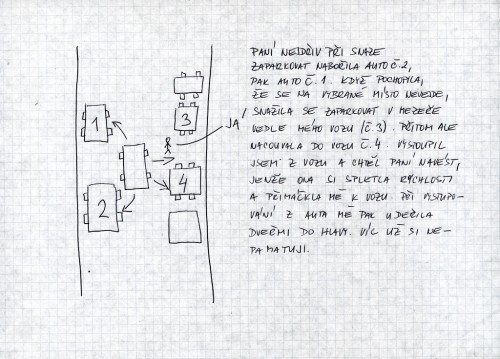 PANÍ NEJDŘÍV PŘI SNAZE
ZAPARKOVAT NABOŘILA AUTO Č.2,
PAK AUTO Č.1. KDYŽ POCHOPILA,
ŽE SE NA VYBRANÉ MÍSTO NEVEJDE,
SNAŽILA SE ZAPARKOVAT V MEZEŘE
VEDLE MÉHO VOZU (Č.3). PŘITOM ALE
NACOUVALA DO VOZU Č.4 VYSTOUPIL
JSEM Z VOZU A CHTĚL PANÍ NAVÉST,
JENŽE ONA SI SPLETLA RYCHLOSTI
A PŘIMÁČKLA MĚ K VOZU. PŘI VYSTUPO-
VÁNÍ Z AUTA MĚ PAK UDEŘILA
DVEŘMI DO HLAVY. VÍC UŽ SI NE-
PAMATUJI.
1
3
JÁ
4
2